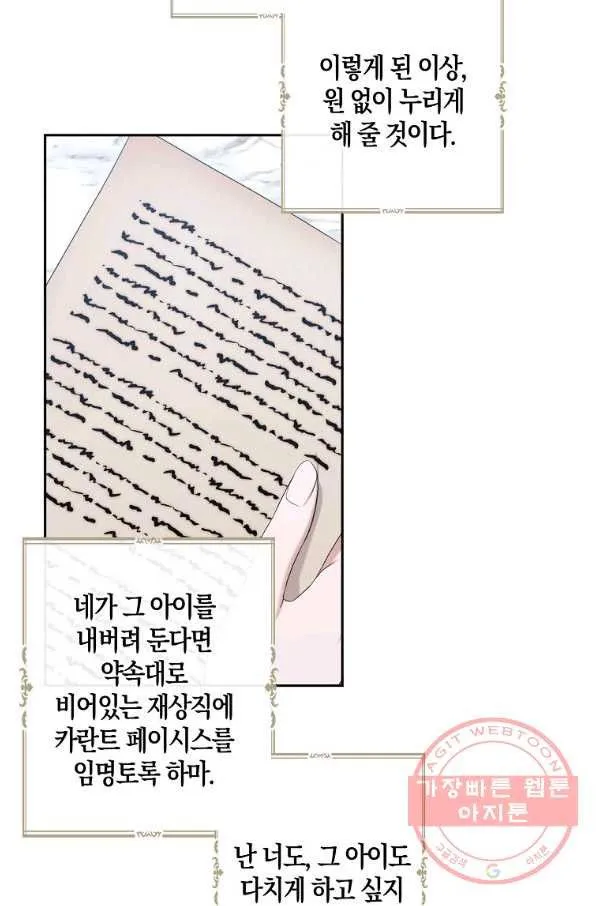 이렇게 된 이상,
원 없이 누리게
해 줄 것이다.
네가 그 아이를
내버려 둔다면
약속대로
비어있는 재상직에
카란트 페이시스를
임명토록 하마.
AGIT WEBTOON
가장빠른 웹툰
아지툰
구글검색 G 아지툰
난 너도, 그 아이도
다치게 하고 싶지